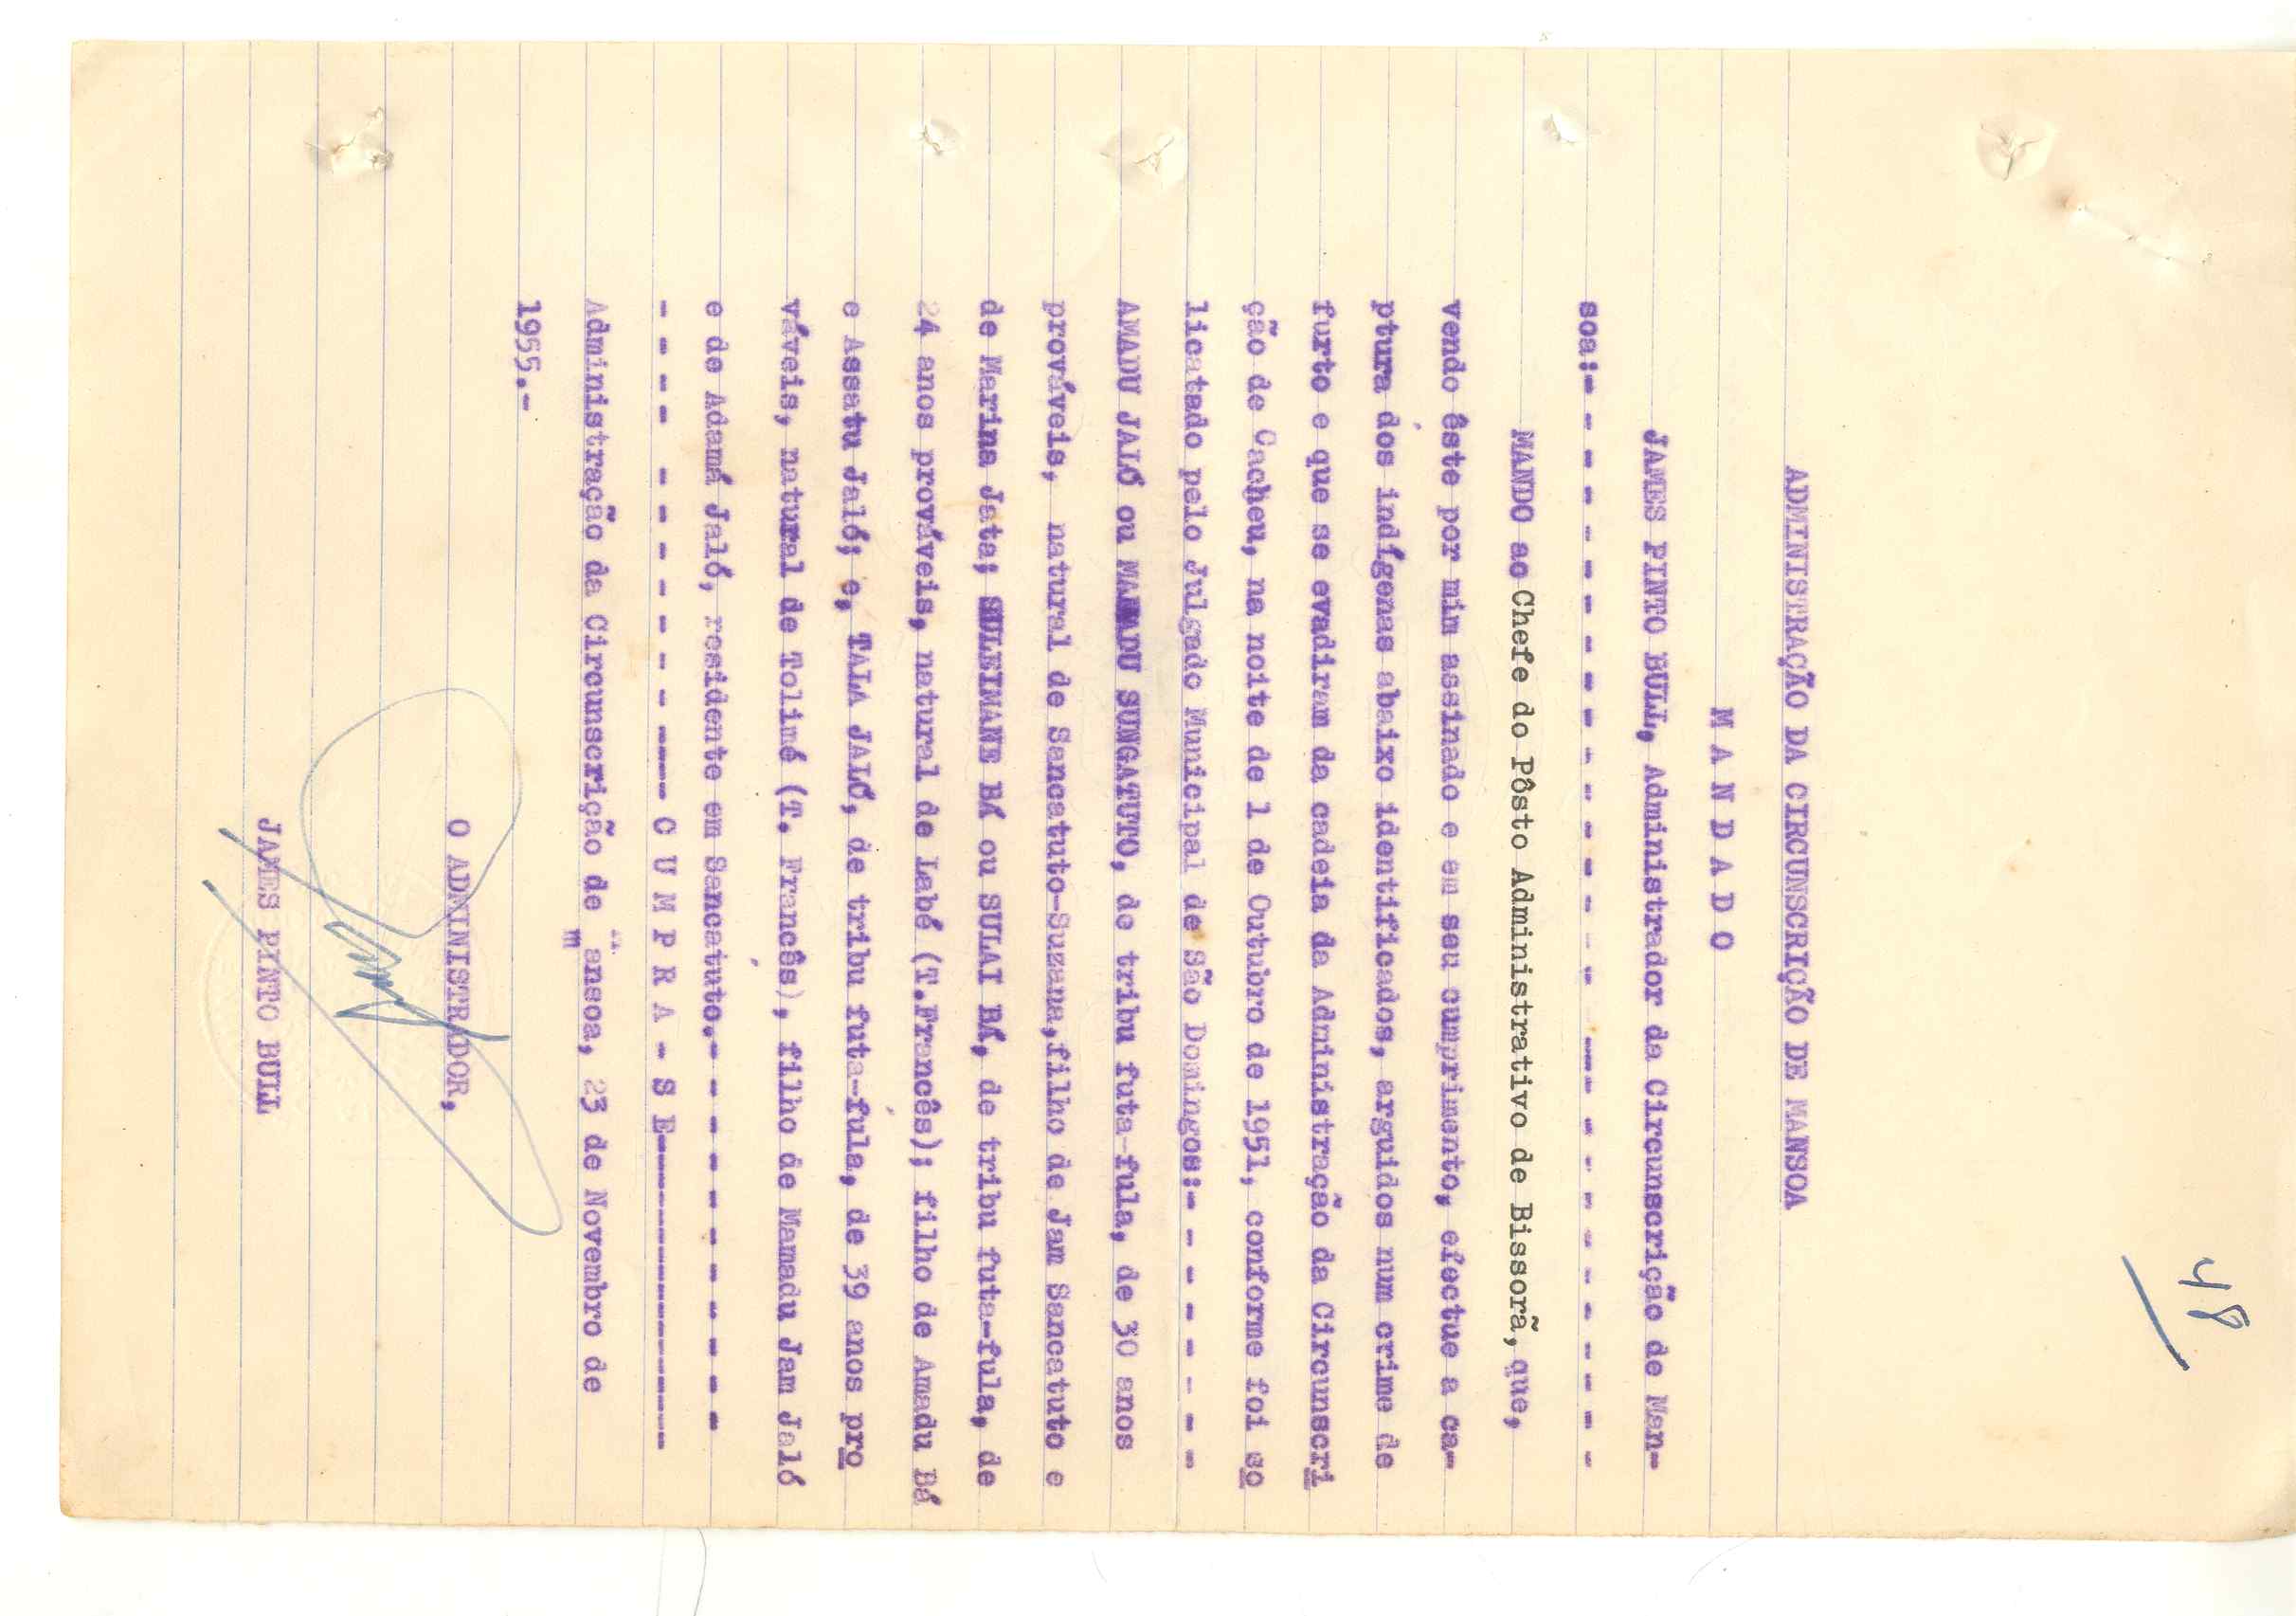 48
ADMINISTRAÇÃO DA CIRCUNSCRIÇÃO DE MANSOA
M A N D A D O
JAMES PINTO BULL, Administrador da Circunscrição de Man-
soa:- - - - - - - - - - - - - - - - - - - - - - - - - - -
MANDO ao Chefe do Pôsto Administrativo de Bissorã, que,
vendo êste por mim assinado e em seu cumprimento, efectue a ca-
ptura dos indígenas abaixo identificados, arguidos num crime de
furto e que se evadiram da cadeia da Administração da Circunscri
ção de Cacheu, na noite de 1 de Outubro de 1951, conforme foi so
licatado pelo Julgado Municipal de São Domingos:- - - - - - - - -
AMADU JALÓ ou MAMADU SUNGATUTO, de tribu futa-fula, de 30 anos
prováveis, natural de Sancatuto-Suzana, filho de Jam Sancatuto e
de Marina Jata; SULEIMANE BÁ ou SULAI BÁ, de tribu futa-fula, de
24 anos prováveis, natural de Labé (T.Francês); filho de Amadu Bá
e Assatu Jaló; e, TALA JALÓ, de tribu futa-fula, de 39 anos pro
váveis, natural de Tolimé (T. Francês), filho de Mamadu Jam Jaló
e de Adamá Jaló, residente em Sancatuto.- - - - - - - - - - - -
- - - - - - - - - - - - - ---- C U M P R A - S E-----------------
Administração da Circunscrição de mansoa, 23 de Novembro de
1955.-
O ADMINISTRADOR,
JAMES PINTO BULL